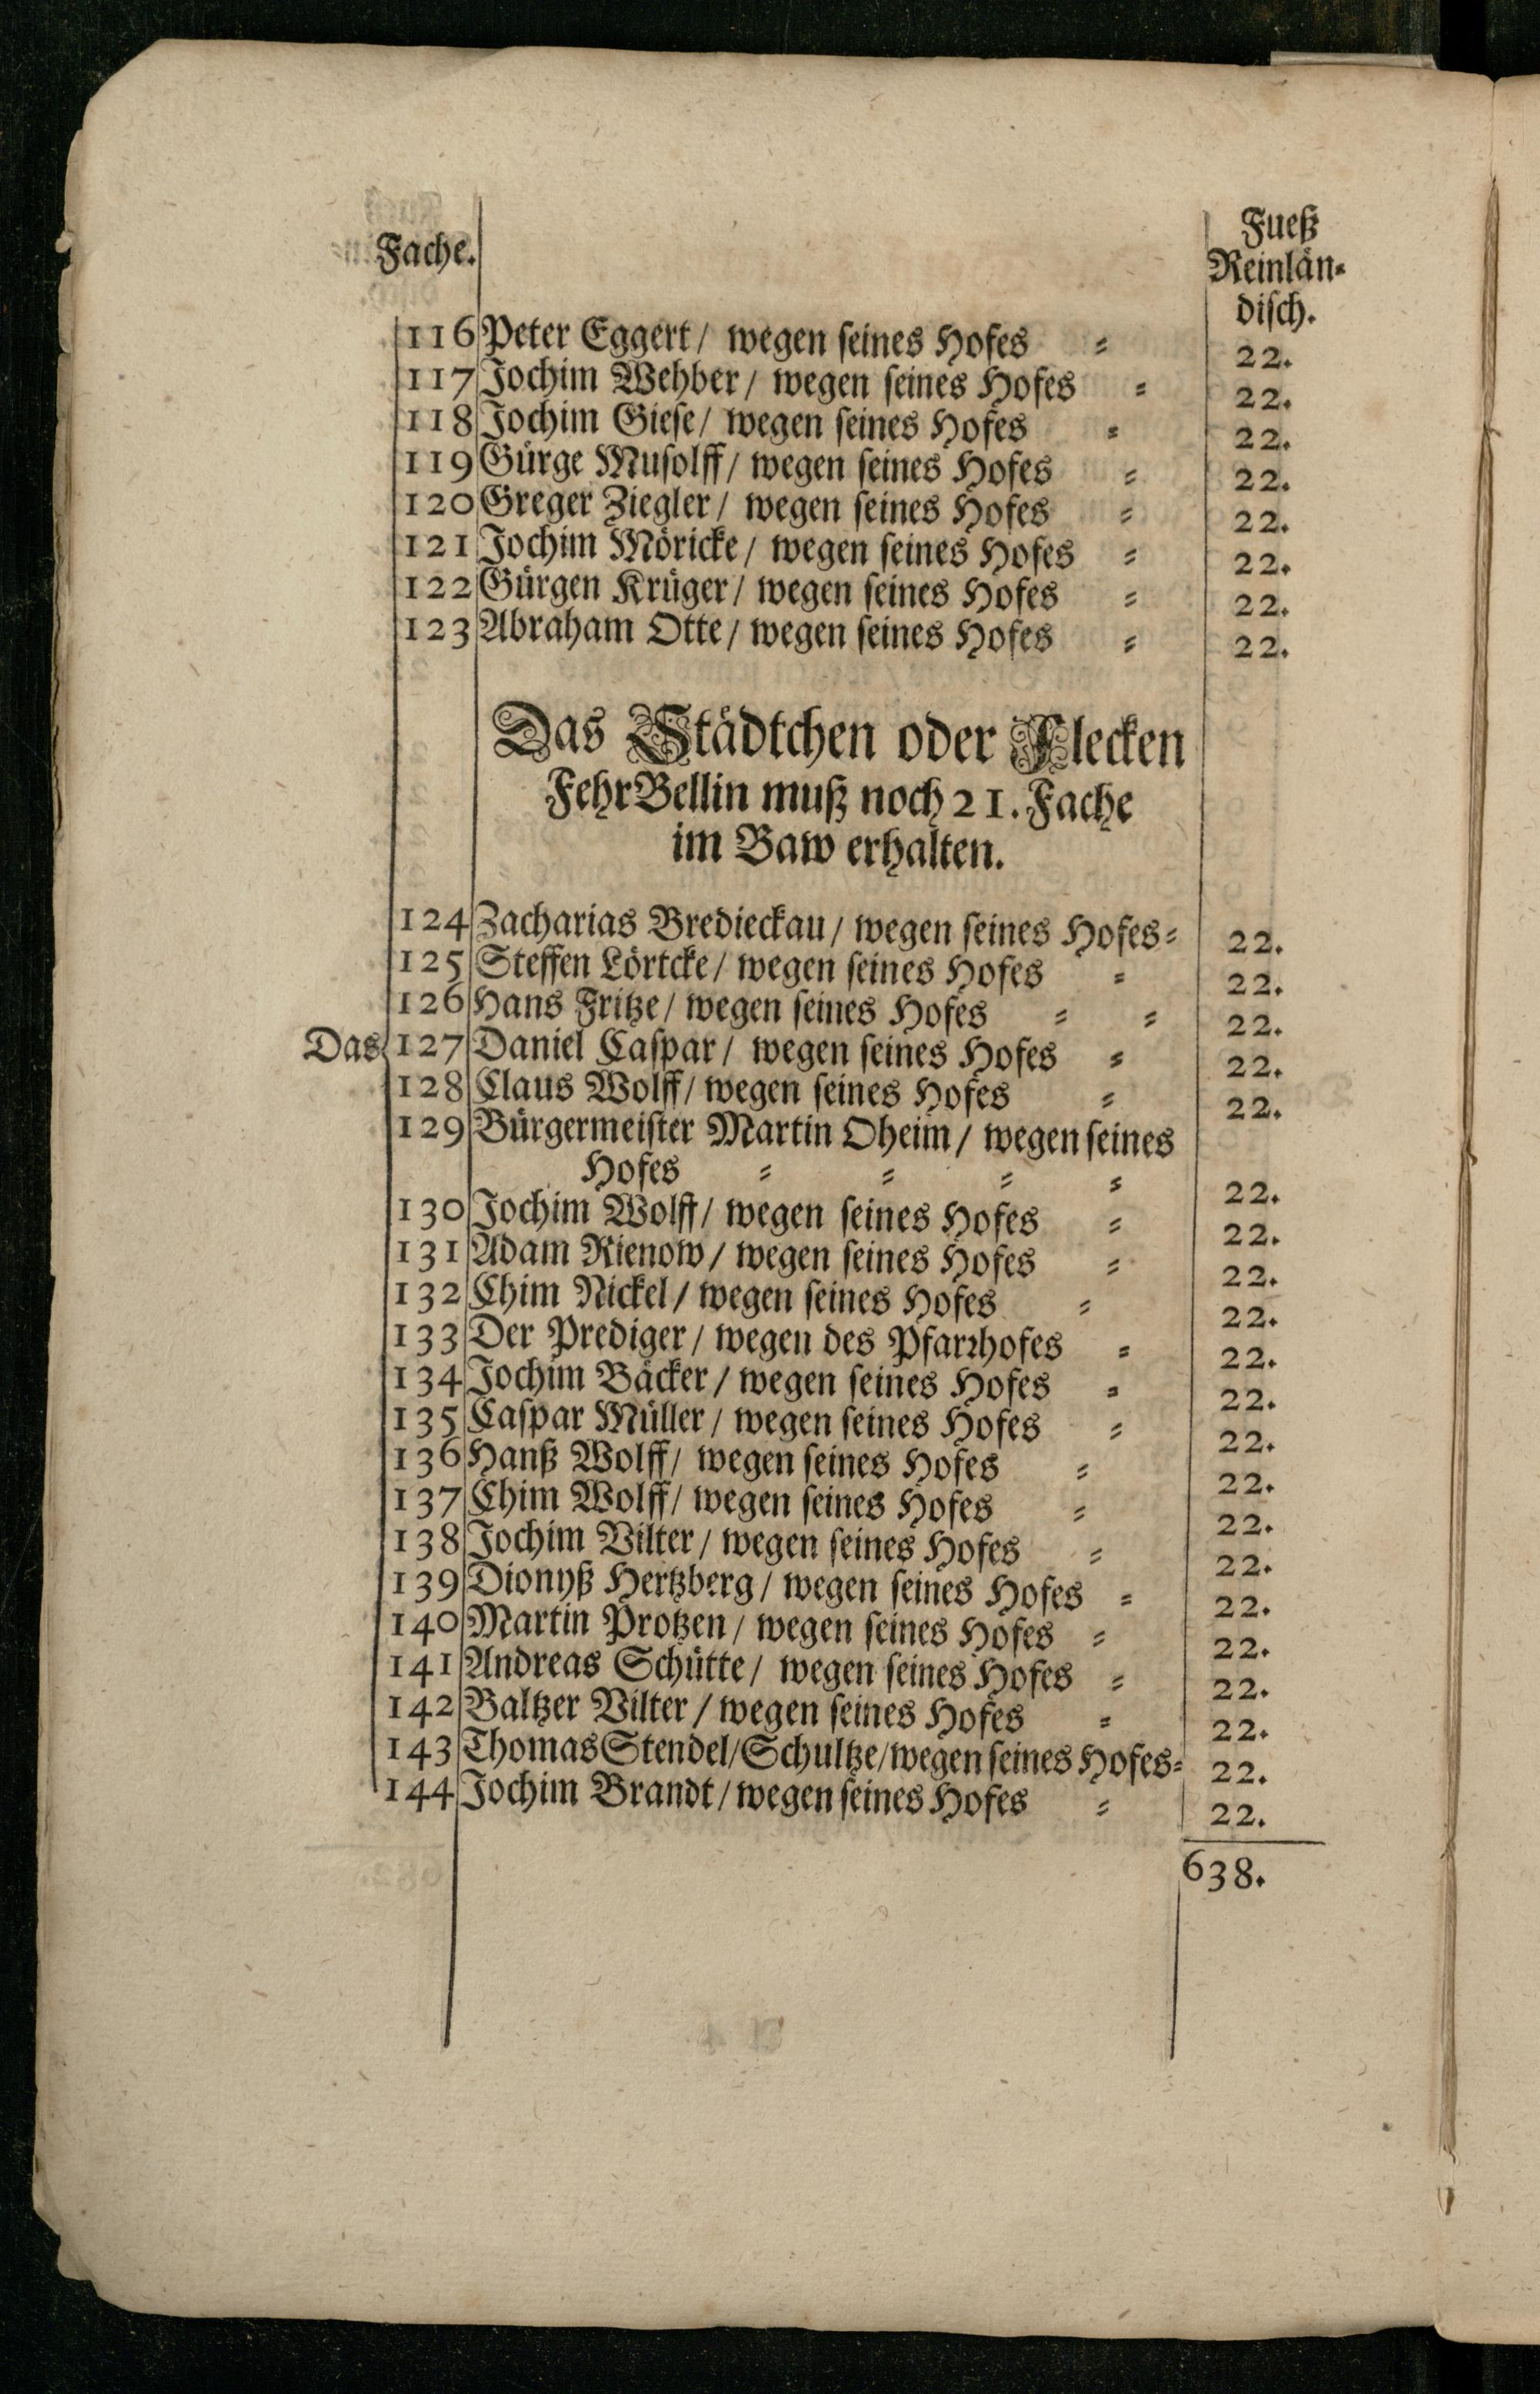 Fache.
Fueß
Reinlän⸗
diſch.
116 Peter Eggert/ wegen ſeines Hofes ⸗ 22.
117 Jochim Wehber/ wegen ſeines Hofes ⸗ 22.
118 Jochim Gieſe/ wegen ſeines Hofes ⸗ 22.
119 Gürge Muſolff/ wegen ſeines Hofes ⸗ 22.
120 Greger Ziegler/ wegen ſeines Hofes ⸗ 22.
121 Jochim Möricke/ wegen ſeines Hofes ⸗ 22.
122 Gürgen Krüger/ wegen ſeines Hofes ⸗ 22.
123 Abraham Otte/ wegen ſeines Hofes ⸗ 22.
Das Städtchen oder Flecken
FehrBellin muß noch 21. Fache
im Baw erhalten.
124 Zacharias Bredieckau/ wegen ſeines Hofes⸗ 22.
125 Steffen Lörtcke/ wegen ſeines Hofes ⸗ 22.
126 Hans Fritze/ wegen ſeines Hofes ⸗ ⸗ 22.
Das 127 Daniel Caſpar/ wegen ſeines Hofes ⸗ 22.
128 Claus Wolff/ wegen ſeines Hofes ⸗ 22.
129 Bürgermeiſter Martin Oheim/ wegen ſeines
Hofes ⸗ ⸗ ⸗ ⸗ 22.
130 Jochim Wolff/ wegen ſeines Hofes ⸗ 22.
131 Adam Rienow/ wegen ſeines Hofes ⸗ 22.
132 Chim Nickel/ wegen ſeines Hofes ⸗ 22.
133 Der Prediger/ wegen des Pfarꝛhofes ⸗ 22.
134 Jochim Bäcker/ wegen ſeines Hofes ⸗ 22.
135 Caſpar Müller/ wegen ſeines Hofes ⸗ 22.
136 Hanß Wolff/ wegen ſeines Hofes ⸗ 22.
137 Chim Wolff/ wegen ſeines Hofes ⸗ 22.
138 Jochim Vilter/ wegen ſeines Hofes ⸗ 22.
139 Dionyß Hertzberg/ wegen ſeines Hofes ⸗ 22.
140 Martin Protzen/ wegen ſeines Hofes ⸗ 22.
141 Andreas Schütte/ wegen ſeines Hofes ⸗ 22.
142 Baltzer Vilter/ wegen ſeines Hofes ⸗ 22.
143 Thomas Stendel/ Schultze/ wegen ſeines Hofes⸗ 22.
144 Jochim Brandt/ wegen ſeines Hofes ⸗ 22.
638.